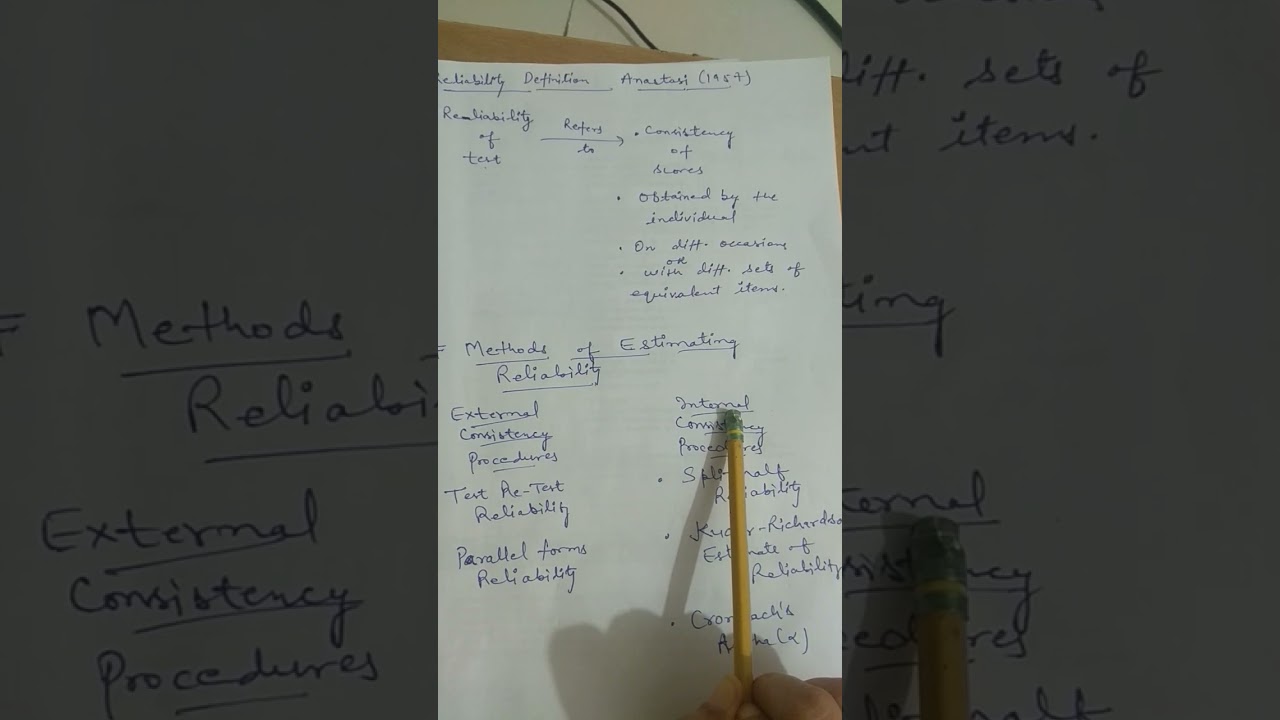 Reliability Definition Anastasi (1957)
Reliability of test
Refers to
. Consistency
of
scores
. Obtained by the
individual
. On diff. occasions
or
. with diff. sets of
equivalent items.
Methods of Estimating
Reliability
External
Consistency
Procedures
Test Re-Test
Reliability
Parallel forms
Reliability
Internal
Consistency
Procedures
. Split half
Reliability
. Kuder-Richardso
Estimate of
Reliability
. Cronbach's
Alpha (α)